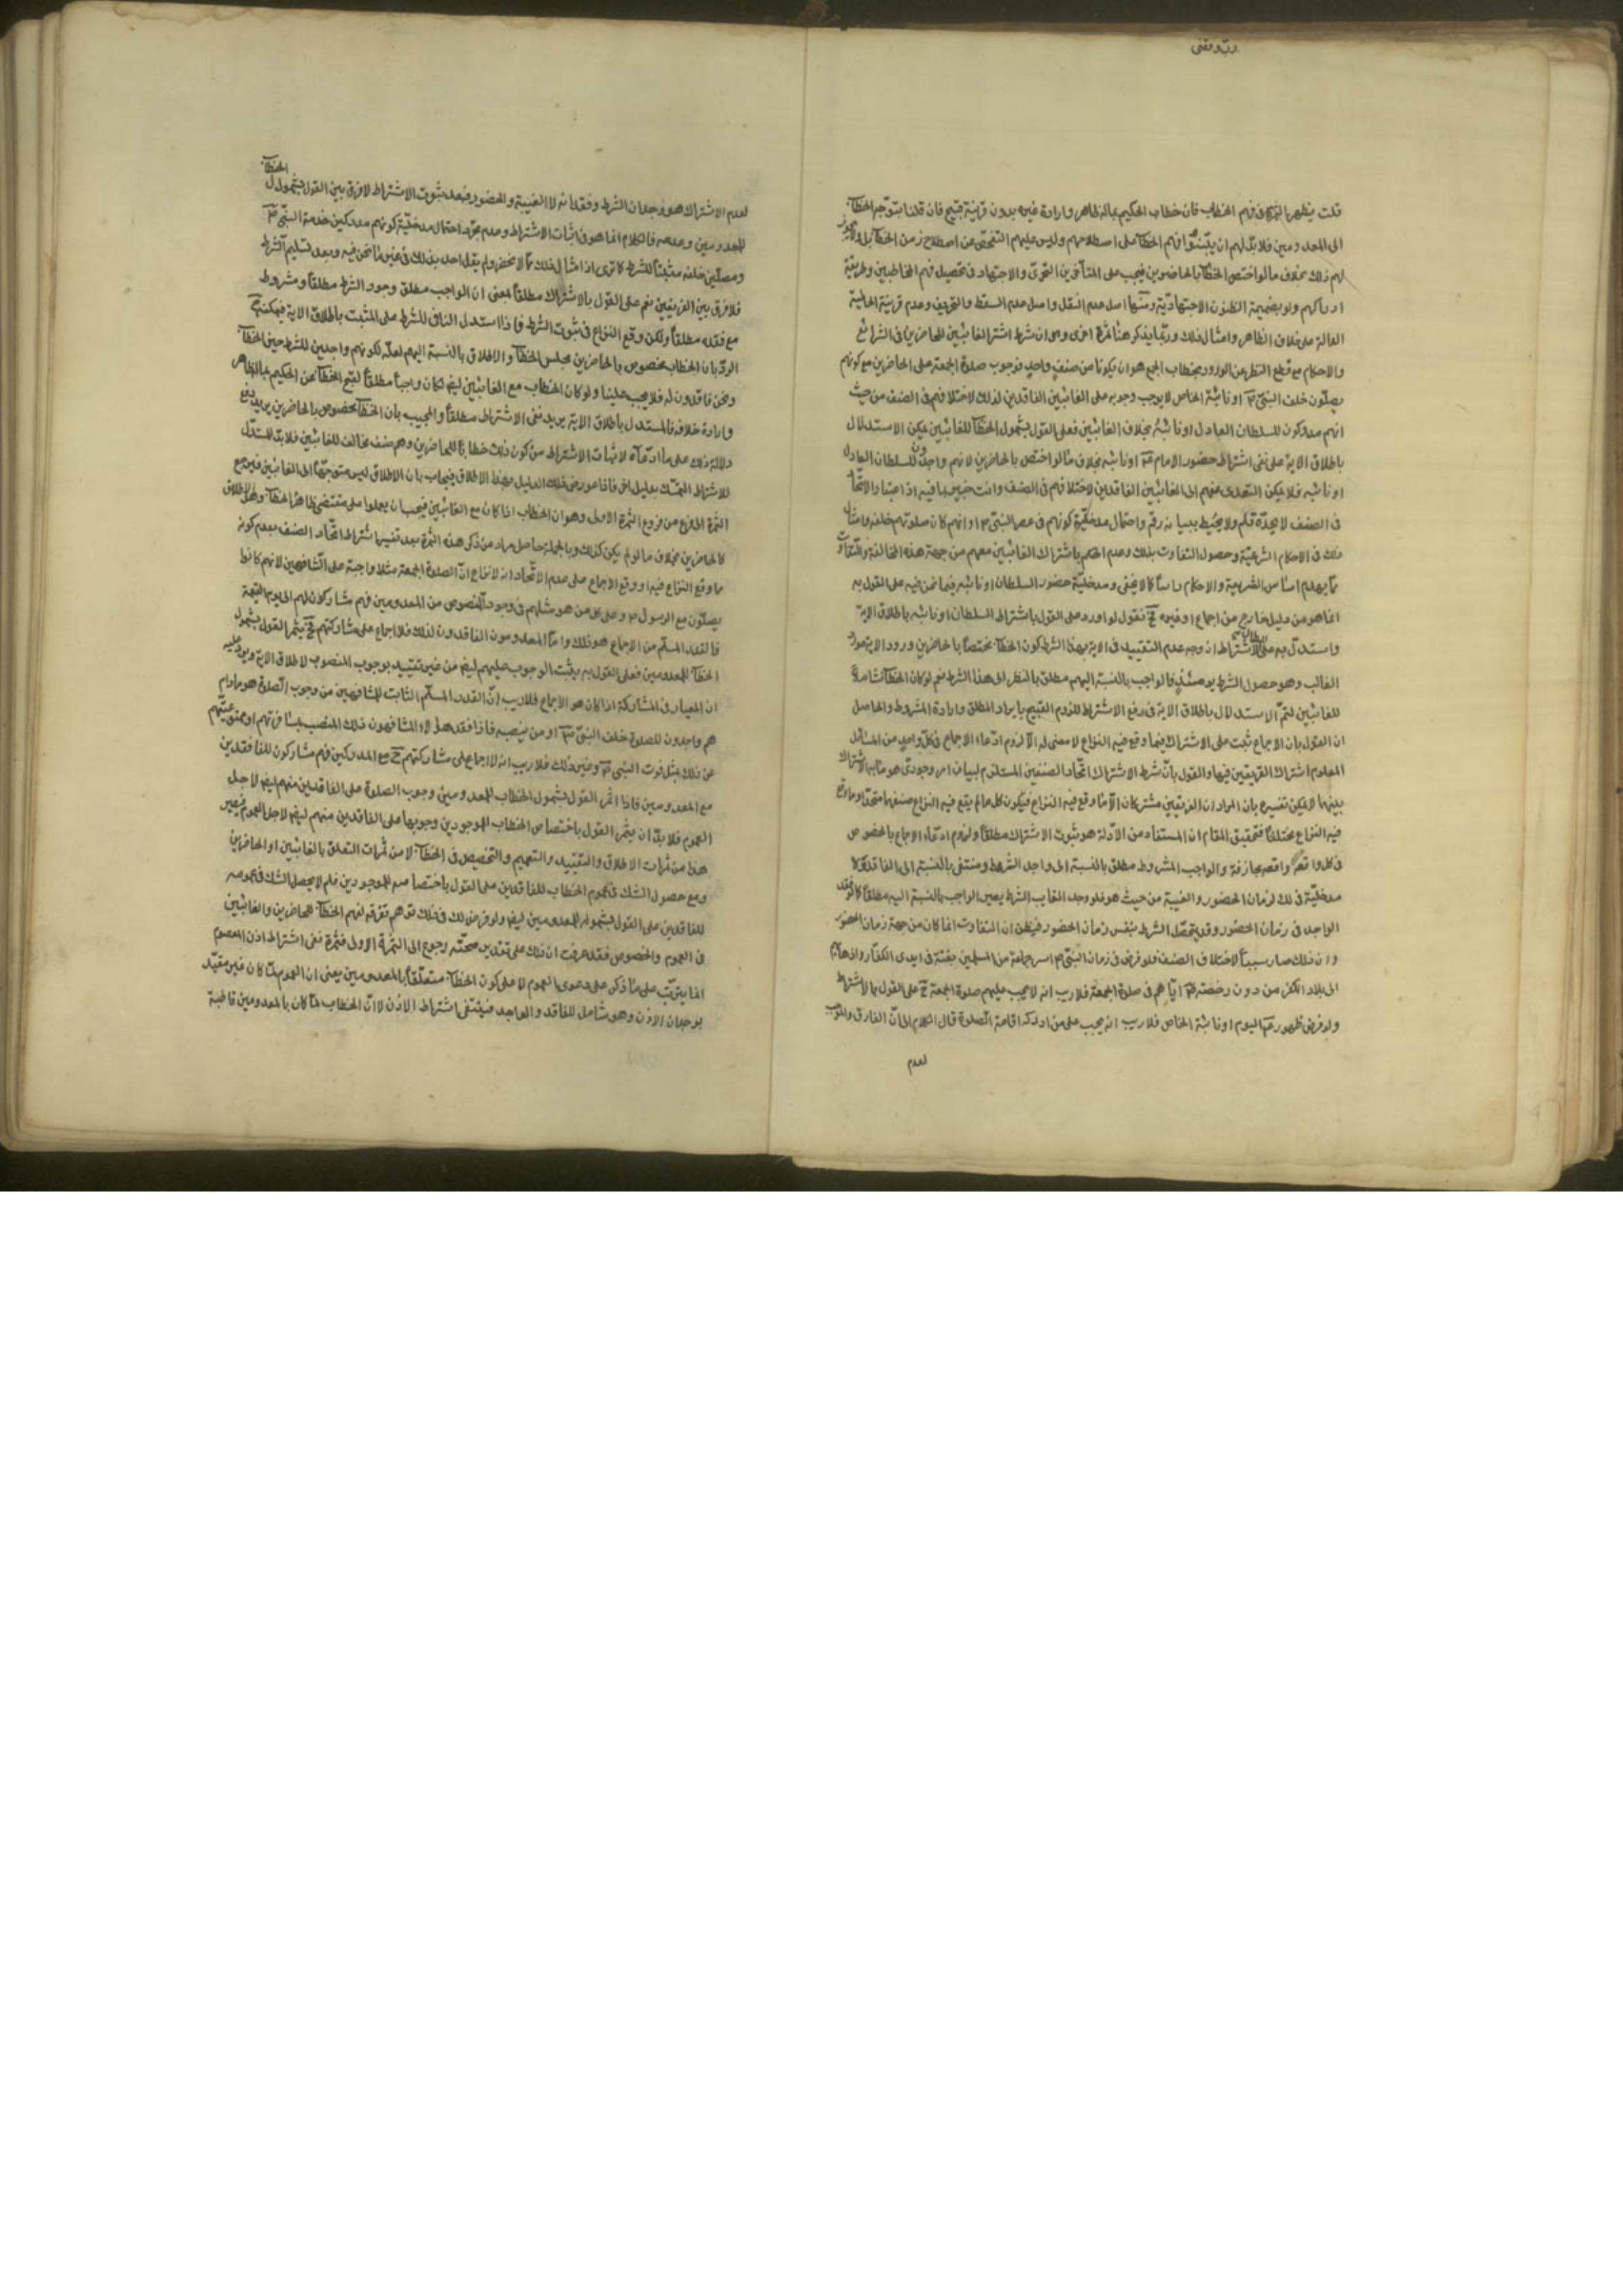 رب وفقنى
قلت يظهر الثمرة فى فهم الخطاب فان خطاب الحكيم بماله ظاهر وارادة غيره بدون قرينة قبيح فان قلنا بتوجه الخطاب
الى المعدومين فلابد لهم ان يتبينوا فهم الخطاب على اصطلاحهم وليس عليهم التفحص عن اصطلاح زمن الخطاب
لهم ذلك بخلاف ما لو اختص الخطاب بالحاضرين فيجب على المتأخرين التحرى والاجتهاد فى تحصيل فهم المخاطبين وطريقة
ادراكهم ولو بضميمة الظنون الاجتهادية ومنها اصل عدم النقل واصل عدم السقط والتحريف وعدم قرينة الحالية
الدالة على خلاف الظاهر وامثال ذلك وربما يذكر هنا ثمرة اخرى وهو ان شرط اشتراك الغائبين للحاضرين فى الشرائع
والاحكام مع قطع النظر عن الورود بخطاب الجمع هو ان يكونا من صنف واحد فوجوب صلوة الجمعة على الحاضرين مع كونهم
يصلون خلف النبى او نائبه الخاص لا يوجب وجوبه على الغائبين الفاقدين لذلك لاختلافهم فى الصنف من حيث
انهم مدركون للسلطان العادل او نائبه بخلاف الغائبين فعلى القول بشمول الخطاب للغائبين يمكن الاستدلال
باطلاق الاية على نفى اشتراط حضور الامام او نائبه بخلاف ما لو اختص بالحاضرين لانهم واجدون للسلطان العادل
او نائبه فلا يمكن التعدى منهم الى الغائبين الفاقدين لاختلافهم فى الصنف وانت خبير بما فيه اذ اعتبار الاتحاد
فى الصنف لا يحده قلم ولا يحيط ببيانه رقم واحتمال مدخلية كونهم فى عصر النبى او انهم كان صلوتهم خلفه وامثال
ذلك فى الاحكام الشرعية وحصول التفاوت بذلك وعدم الحكم باشتراك الغائبين معهم من جهة هذه المخالفة والتفاوت
مما يهدم اساس الشريعة والاحكام رأسا كما لا يخفى ومدخلية حضور السلطان او نائبه فيما نحن فيه على القول به
انما هو من دليل خارج من اجماع او غيره ح نقول لو اورد على القول باشتراط السلطان او نائبه باطلاق الاية
واستدل به على ابطال الاشتراط ان وجه عدم التقييد فى الاية بهذا الشرط كون الخطاب مختصا بالحاضرين وورود الاية مورد
الغالب وهو حصول الشرط يومئذ فالواجب بالنسبة اليهم مطلق بالنظر الى هذا الشرط نعم لو كان الخطاب شاملا
للغائبين لتم الاستدلال باطلاق الاية فى رفع الاشتراط للزوم القبيح بايراد المطلق وارادة المشروط والحاصل
ان القول بان الاجماع ثبت على الاشتراك فيما وقع فيه النزاع لا معنى له الا لزوم ادعاء الاجماع فى كل واحد من المسائل
المعلوم اشتراك الفريقين فيها والقول بان شرط الاشتراك اتحاد الصنفين المستلزم لبيان امر وجودى هو ما به الاشتراك
بينهما لا يمكن تفسيره بان المراد ان الفريقين مشتركان الا ما وقع فيه النزاع فيكون كل ما لم يقع فيه النزاع صنفهما متحدا وما وقع
فيه النزاع مختلفا فتحقيق المقام ان المستفاد من الادلة هو ثبوت الاشتراك مطلقا ولزوم ادعاء الاجماع بالخصوص
فى كل واقعة واقعة مجازفة والواجب المشروط مطلق بالنسبة الى واجد الشرط ومنتفى بالنسبة الى الفاقد ولا
مدخلية فى ذلك لزمان الحضور والغيبة من حيث هو فلو وجد الغايب الشرط يصير الواجب بالنسبة اليه مطلقا كما لو فقد
الواجد فى زمان الحضور وقد يتفصل الشرط بنفس زمان الحضور فيظن ان التفاوت انما كان من جهة زمان الحضور
وان ذلك صار سببا لاختلاف الصنف فلو فرض فى زمان النبى اسر جماعة من المسلمين بغتة فى ايدى الكفار واذهابهم
الى بلاد الكفر من دون رخصته اياهم فى صلوة الجمعة فلا ريب انه لا يجب عليهم صلوة الجمعة ح على القول بالاشتراط
ولو فرض ظهوره اليوم او نائبه الخاص فلا ريب انه يجب على من ادركه اقامة الصلوة قال الكلام الى ان الفارق والموجب
لعدم
لعدم الاشتراك هو وجدان الشرط وفقدانه لا الغيبة والحضور فبعد ثبوت الاشتراط لا فرق بين القول بشمول الخطاب
للمعدومين وعدمه فالكلام انما هو فى اثبات الاشتراط وعدم مجرد احتمال مدخلية كونهم مدركين خدمة النبى
ومصلين خلفه مثبتا للشرط كما ترى اذ امثال ذلك مما لا تحصى ولم يقل احد بذلك فى غير ما نحن فيه وبعد تسليم الشرط
فلا فرق بين الفريقين نعم على القول بالاشتراك مطلقا بمعنى ان الواجب مطلق وجود الشرط مطلقا ومشروط
مع فقده مطلقا ولكن وقع النزاع فى ثبوت الشرط فاذا استدل النافى للشرط على المثبت باطلاق الاية فيمكنه ح
الرد بان الخطاب مخصوص بالحاضرين مجلس الخطاب والاطلاق بالنسبة اليهم لعله لكونهم واجدين للشرط حين الخطاب
ونحن فاقدون له فلا يجب علينا ولو كان الخطاب مع الغائبين ايضا لكان واجبا مطلقا لقبح الخطاب عن الحكيم بماله ظاهر
وارادة خلافه فالمستدل باطلاق الاية يريد نفى الاشتراط مطلقا والمجيب بان الخطاب مخصوص بالحاضرين يريد دفع
دلالة ذلك على ما ادعاه لاثبات الاشتراط من كون ذلك خطابا للحاضرين وهم صنف مخالف للغائبين فلابد لمستدل
للاشتراط التمسك بدليل اخر فاذا عورض ذلك الدليل بهذا الاطلاق فيجاب بان الاطلاق ليس متوجها الى الغائبين فيرجع
الثمرة الى فرع من فروع الثمرة الاولى وهو ان الخطاب اذا كان مع الغائبين فيجب ان يعملوا على مقتضى ظاهر الخطاب وهو الاطلاق
كالحاضرين بخلاف ما لو لم يكن كذلك وبالجملة حاصل مراد من ذكر هذه الثمرة بعد تفسير اشتراط اتحاد الصنف بعدم كونه
مما وقع النزاع فيه او وقع الاجماع على عدم الاتحاد انه لا نزاع ان الصلوة الجمعة مثلا واجبة على المشافهين لانهم كانوا
يصلون مع الرسول وعلى كل من هو مثلهم فى وجود المنصوص من المعدومين فهم مشاركون لهم الى يوم القيمة
فالقدر المسلم من الاجماع هو ذلك واما المعدومون الفاقدون لذلك فلا اجماع على مشاركتهم ح يثمر القول بشمول
الخطاب للمعدومين فعلى القول به يثبت الوجوب عليهم ايضا من غير تقييد بوجوب المنصوب لاطلاق الاية ويرد عليه
ان المعيار فى المشاركة اذا كان هو الاجماع فلا ريب ان القدر المسلم الثابت للمشافهين من وجوب الصلوة هو ما دام
هم واجدون للصلوة خلف النبى او من ينصبه فاذا فقد هؤلاء المشافهون ذلك المنصب
عن ذلك بمثل فوت النبى وغير ذلك فلا ريب انه لا اجماع على مشاركتهم ح مع المدركين فهم مشاركون للفاقدين
مع المعدومين فاذا اثمر القول بشمول الخطاب للمعدومين وجوب الصلوة على الفاقدين منهم ايضا لاجل
العموم فلابد ان يثمر القول باختصاص الخطاب للموجودين وجوبها على الفاقدين منهم ايضا لاجل العموم فيصير
هذا من ثمرات الاطلاق والتقييد والتعميم والتخصيص فى الخطاب لا من ثمرات التعلق بالغائبين او الحاضرين
ومع حصول الشك فى عموم الخطاب للفاقدين على القول باختصاصه للموجودين فلم لا يحصل الشك فى عمومه
للفاقدين على القول بشموله للمعدومين ايضا ولو فرض ذلك فى ذلك توهم تفرقة لفهم الخطاب للحاضرين والغائبين
فى العموم والخصوص فقد عرفت ان ذلك على تقدير صحته رجوع الى الثمرة الاولى فثمرة نفى اشتراط اذن المعصوم
انما يترتب على ما ذكر على دعوى العموم لا على كون الخطاب متعلقا بالمعدومين يعنى ان العموم لما كان غير مقيد
بوجدان الاذن وهو شامل للفاقد والواجد فينتفى اشتراط الاذن لا ان الخطاب لما كان بالمعدومين قاطبة